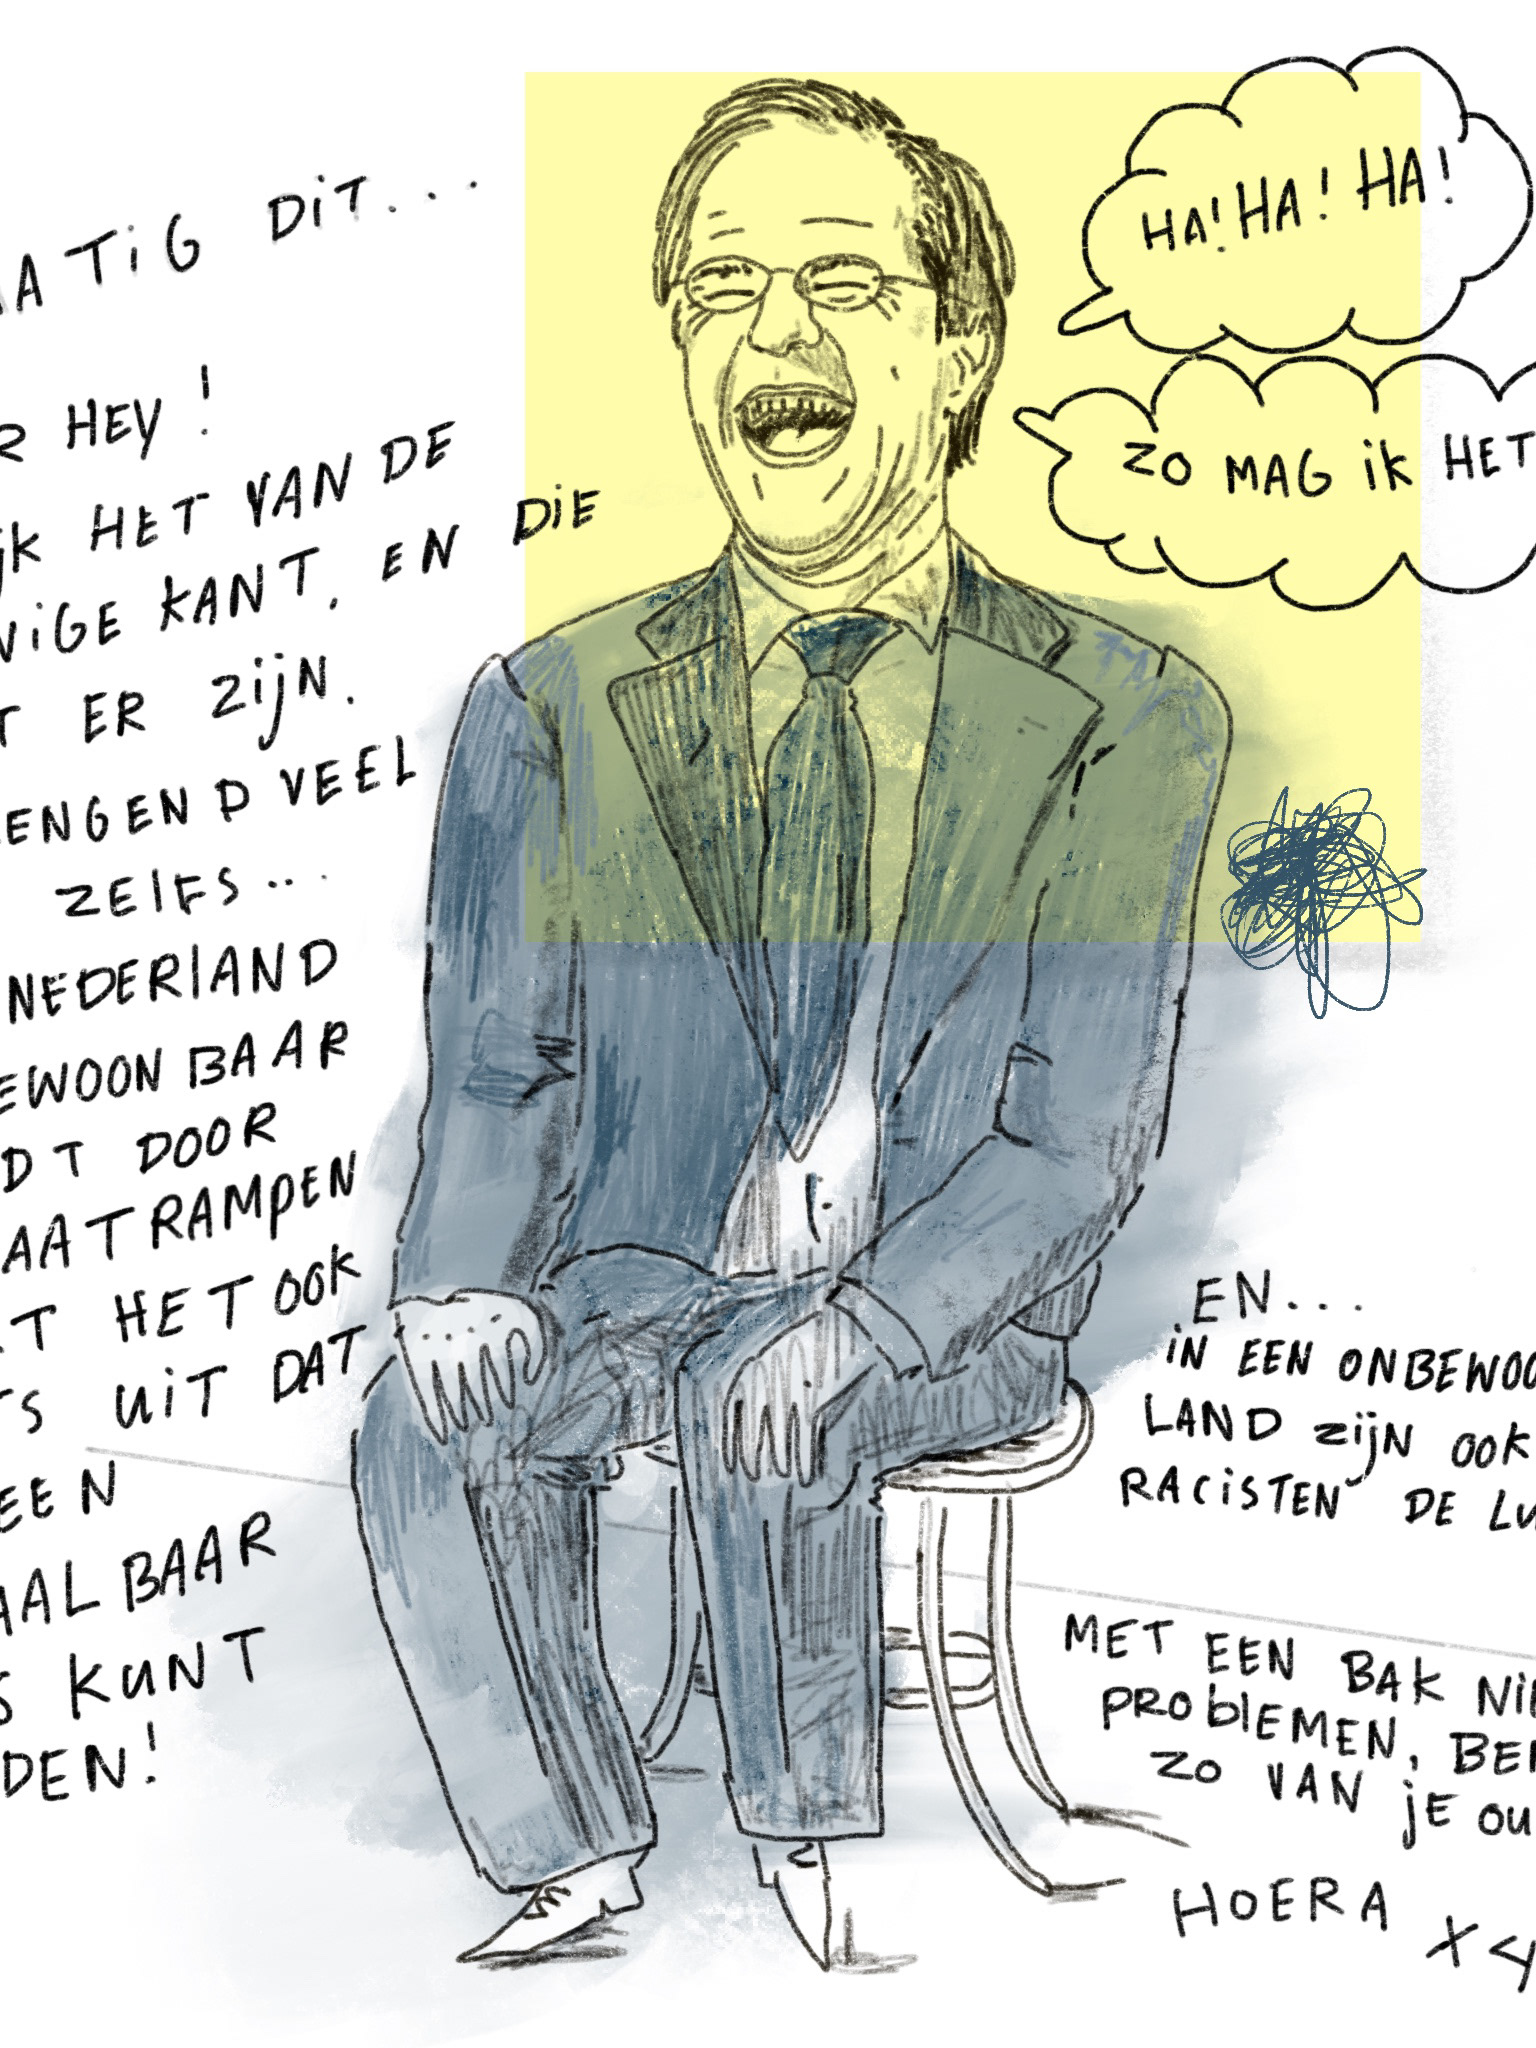 ATIG DIT...
HEY!
HET VAN DE
KANT, EN DIE
ER ZIJN.
VEEL
ZELFS...
NEDERLAND
EWOONBAAR
DT DOOR
AATRAMPEN
HET OOK
UIT DAT
EEN
AALBAAR
KUNT
DEN!
HA! HA! HA!
ZO MAG IK HET
EN...
IN EEN ONBEWOO
LAND ZIJN OOK
RACISTEN DE LU
MET EEN BAK NIE
PROBLEMEN, BEN
ZO VAN JE OU
HOERA